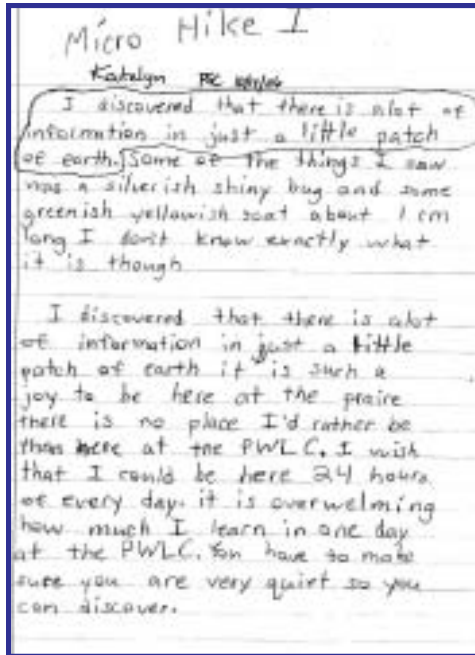 Micro Hike I
Katelyn
I discovered that there is alot of
information in just a little patch
of earth. Some of the things I saw
was a silverish shiny bug and some
greenish yellowish about 1 cm
long I don't know exactly what
it is though
I discovered that there is alot
of information in just a little
patch of earth it is such a
joy to be here at the praire
there is no place I'd rather be
than here at the PWLC. I wish
that I could be here 24 hours
of every day. it is overwelming
how much I learn in one day
at the PWLC. You have to make
sure you are very quiet so you
can discover.